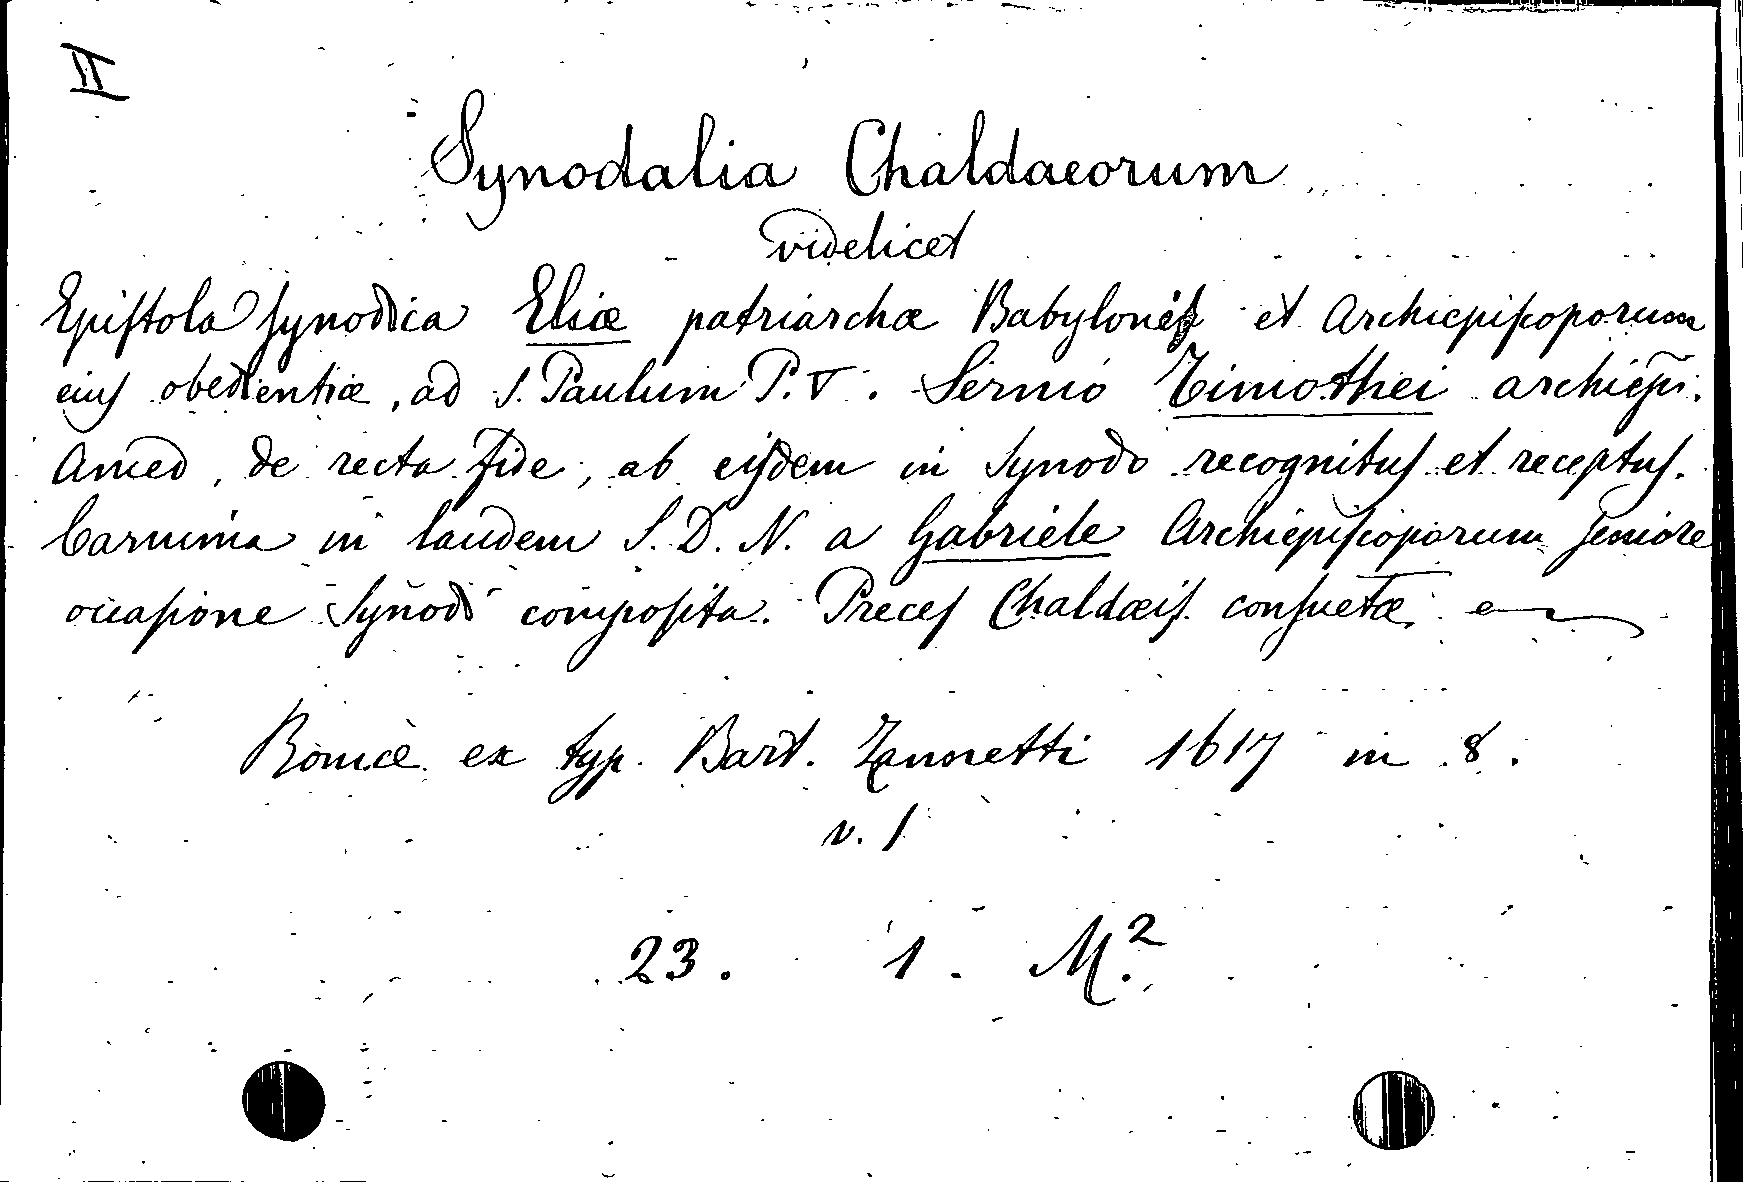 II
Synodalia Chaldaeorum
videlicet
Epistola synodica Eliæ patriarchæ Babylonēs et Archiepiscoporum
eius obedientiæ, ad S. Paulum P. V. Sermo Timothei archiēpi.
Amed, de recta fide, ab eisdem in Synodo recognitus et receptus.
Carmina in laudem S. D. N. a Gabriele Archiepiscoporum seniore
occasione Synodi composita. Preces Chaldæis consuetæ.
Romæ ex typ. Bart. Zannetti 1617 in 8.
v. 1
23. 1. M.2